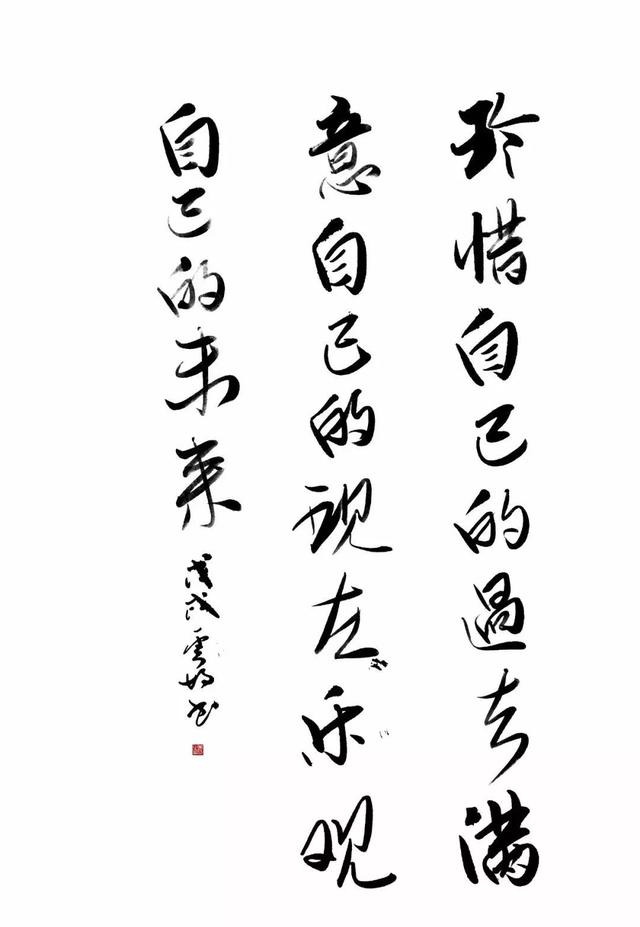 珍惜自己的過去满
意自己的现在乐观
自己的未来
戊戌雲